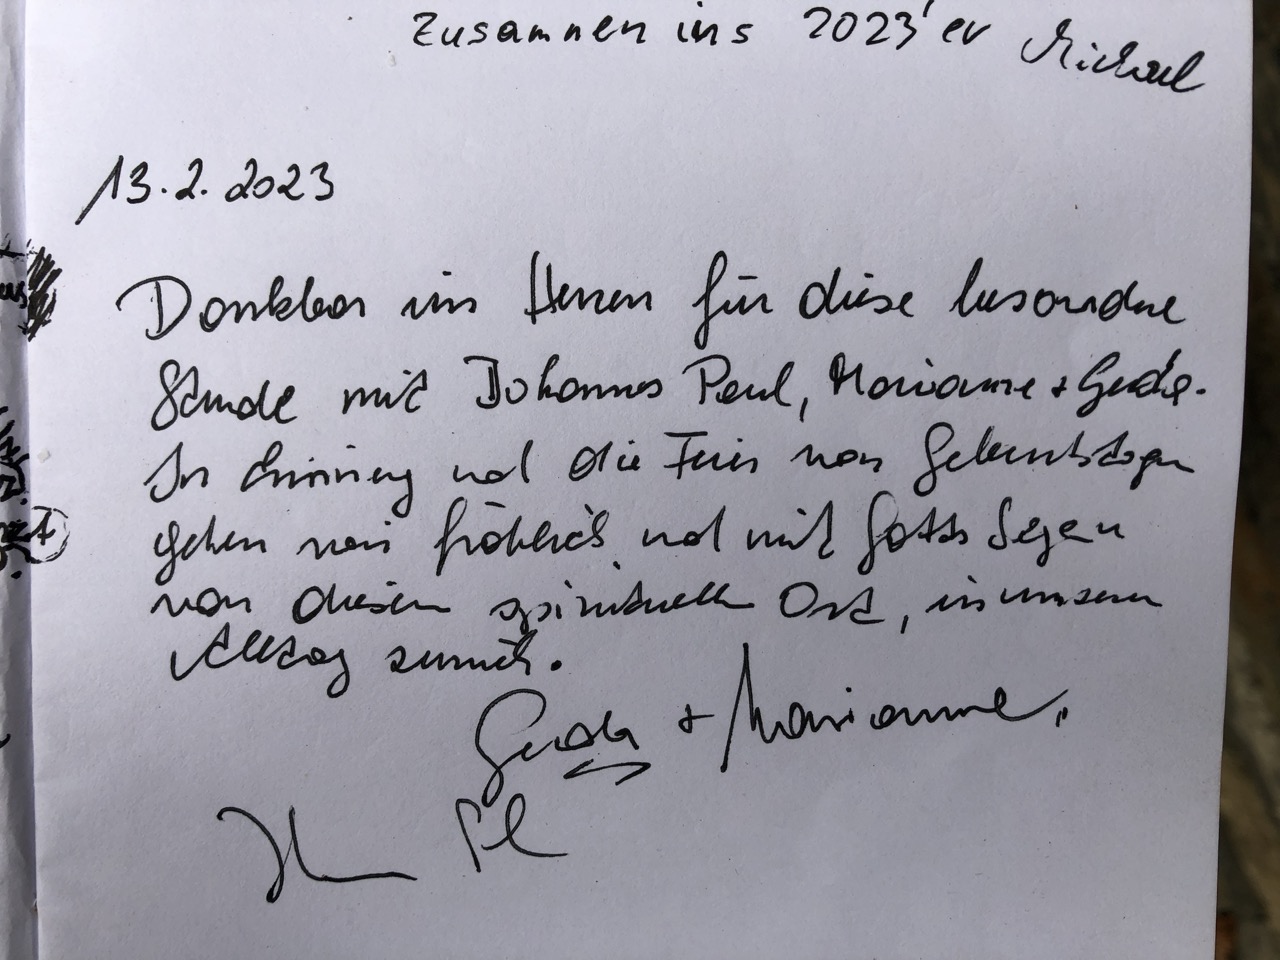 Zusammen ins 2023'er Michael
13.2.2023
Dankbar im Herzen für diese besondere
Stunde mit Johannes Paul, Marianne + Gerda.
In Erinnerung und die Feier von Geburtstagen
gehen wir fröhlich und mit Gottes Segen
von diesem spirituellen Ort, in unseren
Alltag zurück.
Gerda + Marianne